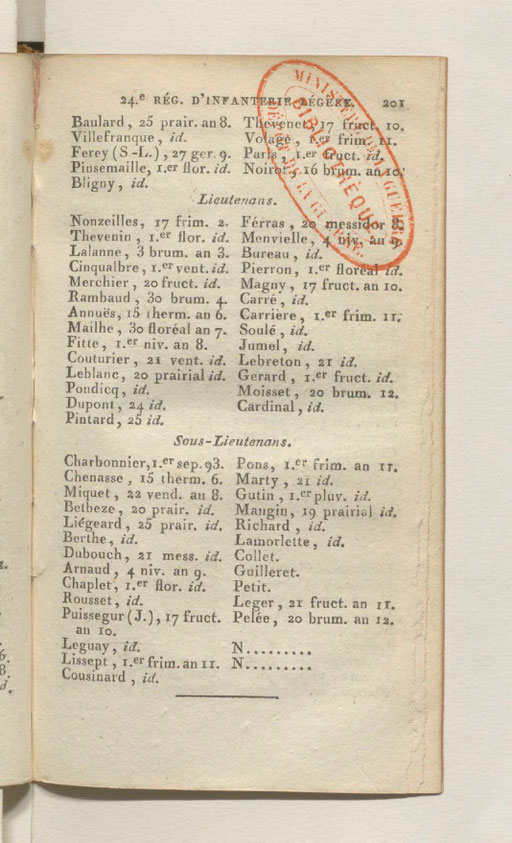 24.e RÉG. D'INFANTERIE LÉGÈRE. 201
Baulard, 25 prair. an 8.
Villefranque, id.
Ferey (S-L.), 27 ger. 9.
Pinsemaille, 1.er flor. id.
Bligny, id.
Thevenet, 17 fruct. 10.
Volage, 1.er frim. 11.
Paris, 1.er fruct. id.
Noirot, 16 brum. an 10.
MINISTÈRE DE LA GUERRE
BIBLIOTHÈQUE
DÉPÔT DE LA GUERRE.
Lieutenans.
Nonzeilles, 17 frim. 2.
Thevenin, 1.er flor. id.
Lalanne, 3 brum. an 3.
Cinqualbre, 1.er vent. id.
Merchier, 20 fruct. id.
Rambaud, 30 brum. 4.
Annuës, 15 therm. an 6.
Mailhe, 30 floréal an 7.
Fitte, 1.er niv. an 8.
Couturier, 21 vent. id.
Leblanc, 20 prairial id.
Pondicq, id.
Dupont, 24 id.
Pintard, 25 id.
Férras, 20 messidor 8.
Menvielle, 4 niv. an 9.
Bureau, id.
Pierron, 1.er floréal id.
Magny, 17 fruct. an 10.
Carré, id.
Carrière, 1.er frim. 11.
Soulé, id.
Jumel, id.
Lebreton, 21 id.
Gerard, 1.er fruct. id.
Moisset, 20 brum. 12.
Cardinal, id.
Sous-Lieutenans.
Charbonnier, 1.er sep. 93.
Chenasse, 15 therm. 6.
Miquet, 22 vend. an 8.
Betbeze, 20 prair. id.
Liégeard, 25 prair. id.
Berthe, id.
Dubouch, 21 mess. id.
Arnaud, 4 niv. an 9.
Chaplet, 1.er flor. id.
Rousset, id.
Puissegur (J.), 17 fruct.
an 10.
Leguay, id.
Lissept, 1.er frim. an 11.
Cousinard, id.
Pons, 1.er frim. an 11.
Marty, 21 id.
Gutin, 1.er pluv. id.
Mangin, 19 prairial id.
Richard, id.
Lamorlette, id.
Collet.
Guilleret.
Petit.
Leger, 21 fruct. an 11.
Pelée, 20 brum. an 12.
N.........
N.........